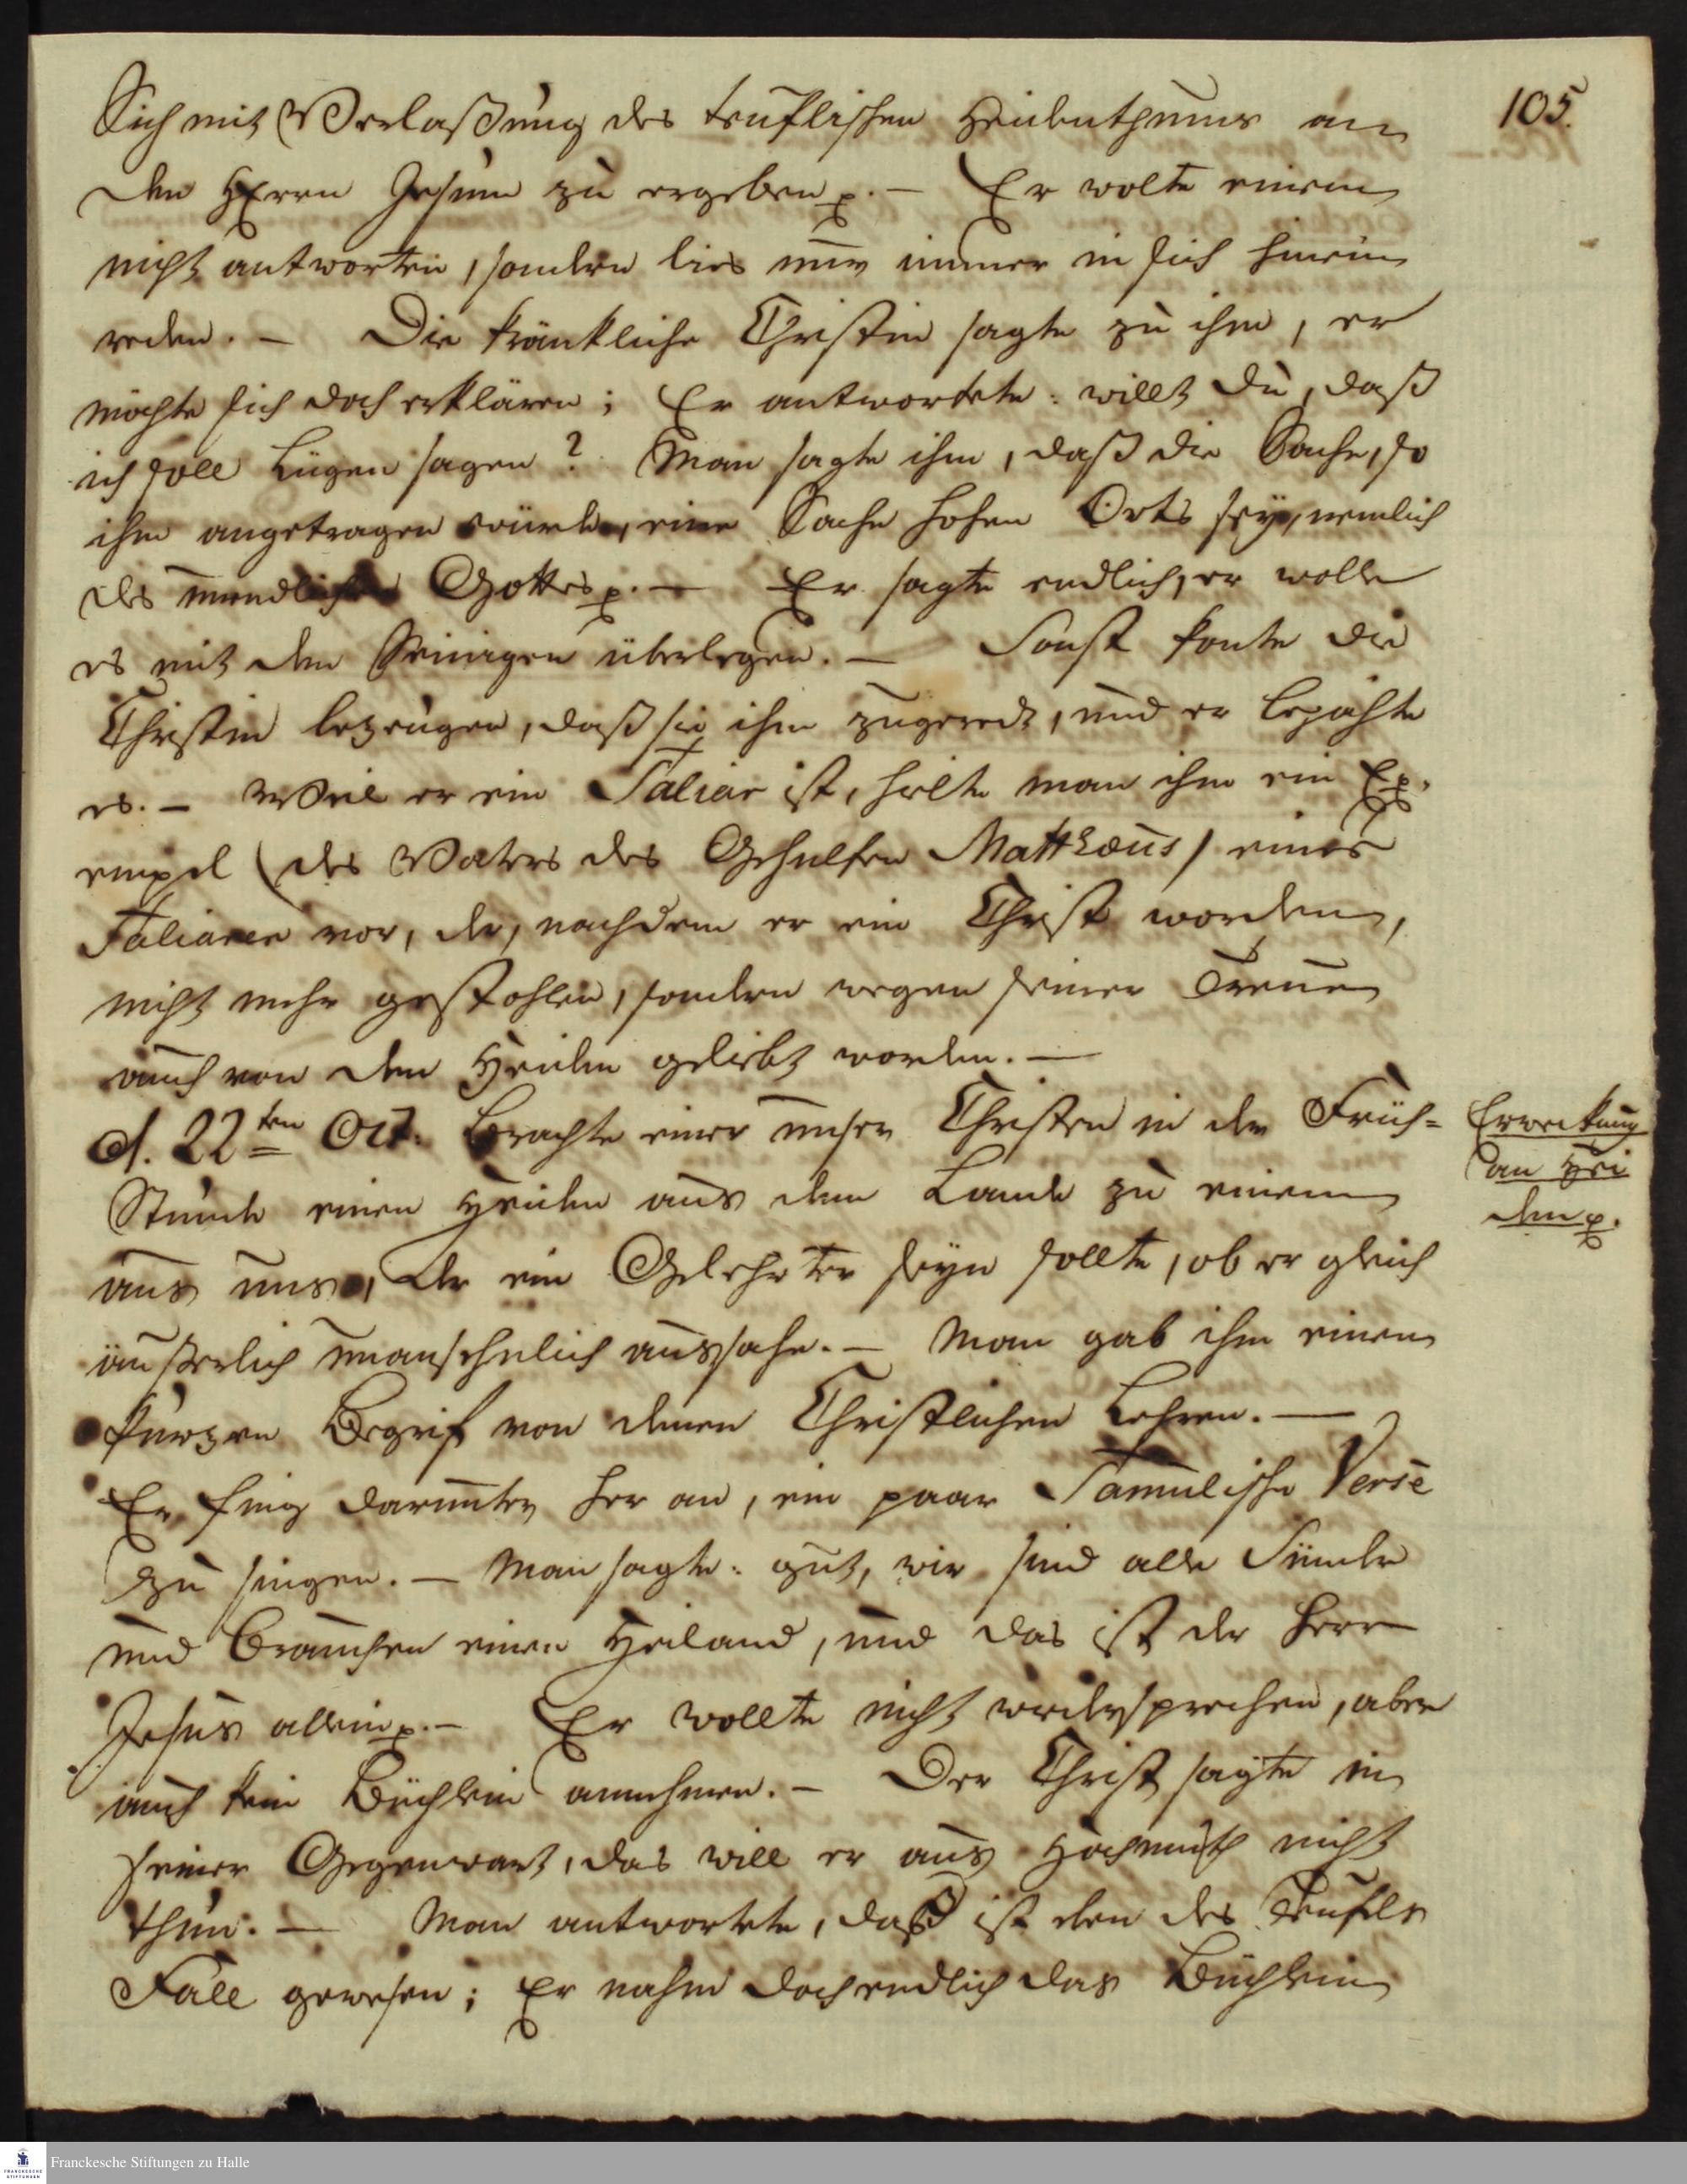 105.
Sich mit Verlaßung des teuflischen Heidenthums an
den HErrn Jesum zu ergeben p. – Er wolte einem
nicht antworten, sondern lies nur immer in sich hinein
reden. – Die kränkliche Christin sagte zu ihm, er
möchte sich doch erklären; Er antwortete: willt du, daß
ich soll Lügen sagen? Man sagte ihm, daß die Sache, so
ihm angetragen würde, eine Sache hohen Orts sey, nemlich
des unendlichen Gottes p. – Er sagte endlich, er wolle
es mit den Seinigen überlegen. – Sonst konte die
Christin bezeugen, daß sie ihm zugeredt, und er bejahte
es. – Weil er ein Taliar ist, hielte man ihm ein Ex-
empel (des Vaters des Gehülfen Matthaeus) eines
Taliaren vor, der, nachdem er ein Christ worden,
nicht mehr gestohlen, sondern wegen seiner Treue
auch von den Heiden geliebt worden. –
d. 22ten Oct. brachte einer unser Christen in der Früh-
Stunde einen Heiden aus dem Lande zu einem
aus uns, der ein Gelehrter seyn sollte, ob er gleich
äußerlich unansehnlich aussahe. – Man gab ihm einen
kurzen Begrif von denen Christlichen Lehren. –
Er fing darunter her an, ein paar Tamulische Verse
zu singen. – Man sagte: gut, wir sind alle Sünder
und brauchen einen Heiland, und das ist der Herr
Jesus allein p. – Er wollte nicht widersprechen, aber
auch kein Büchlein annehmen. – Der Christ sagte in
seiner Gegenwart, das will er aus Hochmuth nicht
thun. – Man antwortete, daß ist eben des Teufels
Fall gewesen; Er nahm doch endlich das Büchlein
Erweckung
an Hei
den p.
Franckesche Stiftungen zu Halle